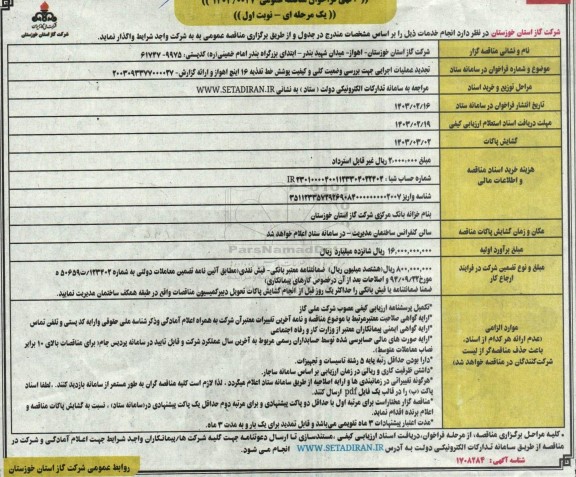 (( یک مرحله ای - نوبت اول ))
شرکت گاز استان خوزستان
شرکت گاز استان خوزستان در نظر دارد انجام خدمات ذیل را بر اساس مشخصات مندرج در جدول و از طریق برگزاری مناقصه عمومی به به شرکت واجد شرایط واگذار نماید.
نام و نشانی مناقصه گزار
شرکت گاز استان خوزستان- اهواز- میدان شهید بندر - ابتدای بزرگراه بندر امام خمینی(ره) کدپستی: ۹۹۷۵- ۶۱۷۳۷
موضوع و شماره فراخوان در سامانه ستاد
تجدید عملیات اجرایی جهت بررسی وضعیت کلی و کیفیت پوشش خط تغذیه ۱۶ اینچ اهواز و ارائه گزارش- ۲۰۰۳۰۹۳۳۷۷۰۰۰۰۲۷
مراحل توزیع و خرید اسناد
مراجعه به سامانه تدارکات الکترونیکی دولت ( ستاد ) به نشانی WWW.SETADIRAN.IR
تاریخ انتشار فراخوان در سامانه ستاد
۱۴۰۳/۰۲/۱۶
مهلت دریافت اسناد استعلام ارزیابی کیفی
۱۴۰۳/۰۲/۱۹
گشایش پاکات
۱۴۰۳/۰۳/۰۲
هزینه خرید اسناد مناقصه و اطلاعات مالی
مبلغ ۲،۰۰۰،۰۰۰ ریال غیر قابل استرداد
شماره حساب شبا :
شناسه واریز
بنام خزانه بانک مرکزی شرکت گاز استان خوزستان
مکان و زمان گشایش پاکات مناقصه
سالن کنفرانس ساختمان مدیریت - در سامانه ستاد اعلام خواهد شد
مبلغ برآورد اولیه
۱۶،۰۰۰،۰۰۰،۰۰۰ ریال شانزده میلیارد ریال
مبلغ و نوع تضمین شرکت در فرایند ارجاع کار
۸۰۰،۰۰۰،۰۰۰ ریال(هشتصد میلیون ریال) ضمانتنامه معتبر بانکی- فیش نقدی(مطابق آئین نامه تضمین معاملات دولتی به شماره ۱۲۳۴۰۲/ت۵۰۶۵۹ ه
مورخ۹۴/۰۹/۲۲ و اصلاحات بعد از آن درخصوص کارهای پیمانکاری)
ضمنا ضمانتنامه یا فیش بانکی را حداکثر یک روز قبل از انجام گشایش پاکات تحویل دبیرکمیسیون مناقصات واقع در طبقه همکف ساختمان مدیریت نمایید.
موارد الزامی
(عدم ارائه هر کدام از اسناد، باعث حذف مناقصه‌گر از لیست شرکت‌کنندگان در مناقصه خواهد شد)
*تکمیل پرسشنامه ارزیابی کیفی مصوب شرکت ملی گاز
*ارایه گواهی صلاحیت معتبرمرتبط با موضوع مناقصه و نامه آخرین تغییرات معتبرآن شرکت به همراه اعلام آمادگی وذکر شناسه ملی حقوقی وارایه کد پستی و تلفن تماس
*ارایه گواهی ایمنی پیمانکاران معتبر از وزارت کار و رفاه اجتماعی
*ارایه صورت های مالی حسابرسی شده توسط حسابداران رسمی مربوط به آخرین سال عملکرد شرکت و قابل تایید در سامانه پردیس جام؛ برای مناقصات بالای ۱۰ برابر نصاب معاملات متوسط).
*دارا بودن حداقل رتبه پایه ۵ رشته تاسیسات و تجهیزات.
*داشتن ظرفیت کاری و ریالی در زمان ارزیابی بر اساس سامانه ساجار.
*هرگونه تغییراتی در زمانبندی ها و ارایه اصلاحیه از طریق سامانه ستاد اعلام میگردد ، لذا لازم است کلیه مناقصه گران به طور مستمر از سامانه بازدید کنند . لطفا اسناد پاکت (ب) را در قالب یک فایل pdf ارسال کنند.
*مناقصه گزار مختاراست برای مرتبه اول با حداقل دو پاکت پیشنهادی و برای مرتبه دوم حداقل یک پاکت پیشنهادی در(سامانه ستاد) ، نسبت به گشایش پاکات مناقصه و اعلام برنده اقدام نماید.
*مدت اعتبار پیشنهادات ۳ ماه تقویمی می‌باشد و قابل تمدید برای یک بار و به مدت ۳ ماه.
• کلیه مراحل برگزاری مناقصه، از مرحله فراخوان،دریافت اسناد ارزیابی کیفی ،مستندسازی تا ارسال دعوتنامه جهت کلیه شرکت ها/پیمانکاران واجد شرایط جهت اعلام آمادگی و شرکت در مناقصه از طریق سامانه تدارکات الکترونیکی دولت به آدرس WWW.SETADIRAN.IR انجام می شود.
شناسه آگهی: ۱۷۰۸۲۸۴
روابط عمومی شرکت گاز استان خوزستان